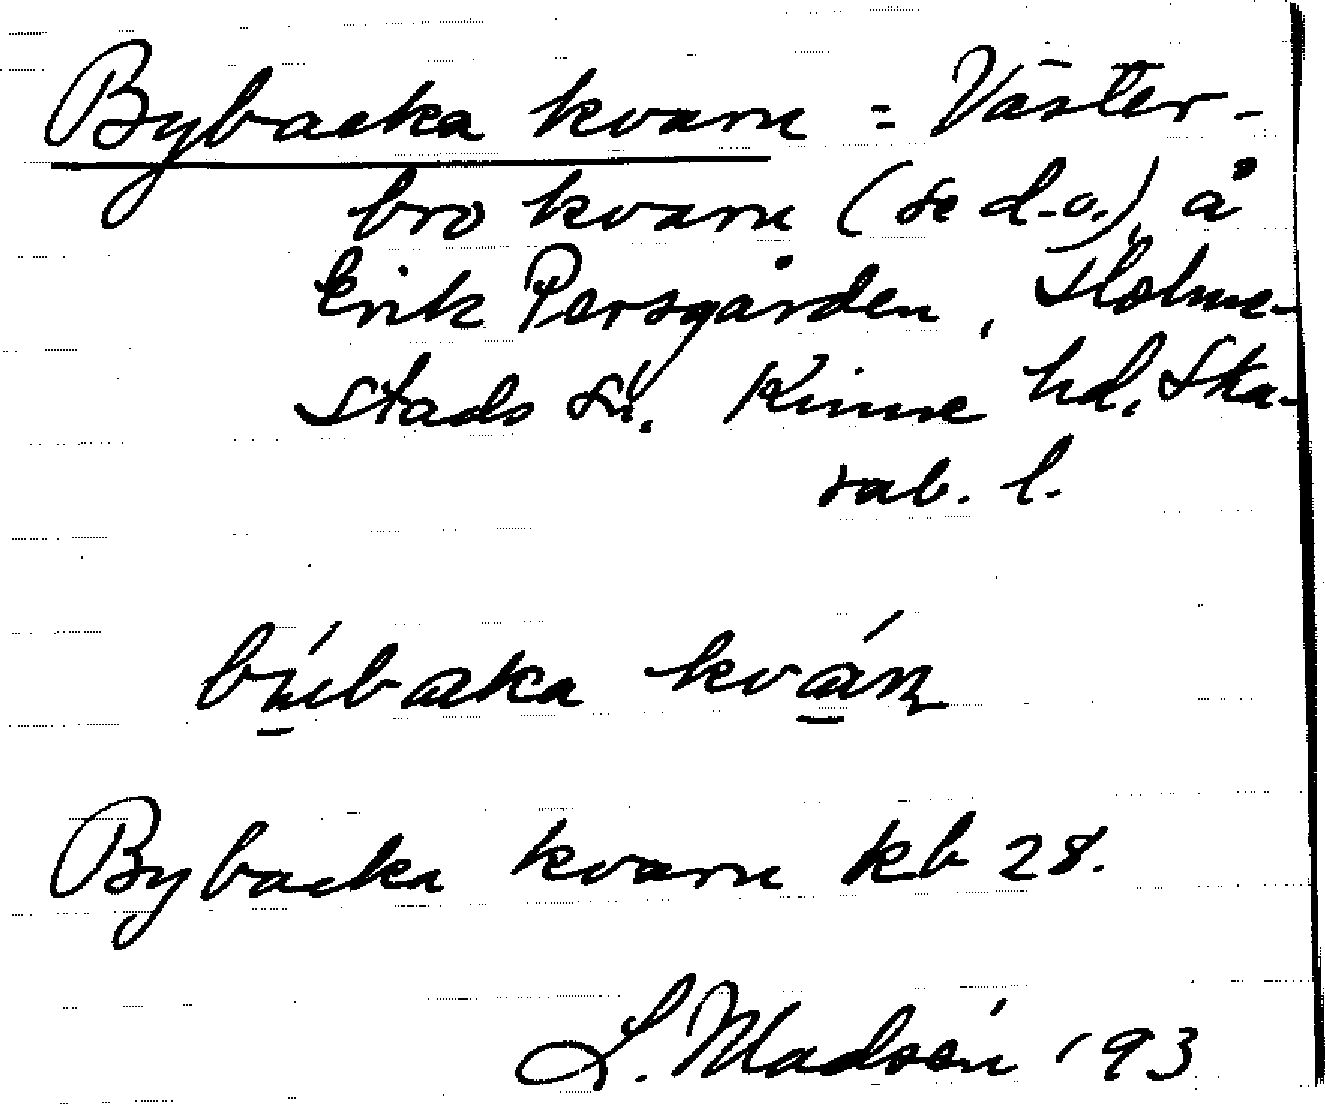 Bybacka kvarn = Väster-
bro kvarn (se d.o.) å
Erik Persgården, Holme-
stads sn. Kinne hd, Ska-
rab. l.
bybaka kván
Bybacka kvarn kb 28.
L. Madsén '93